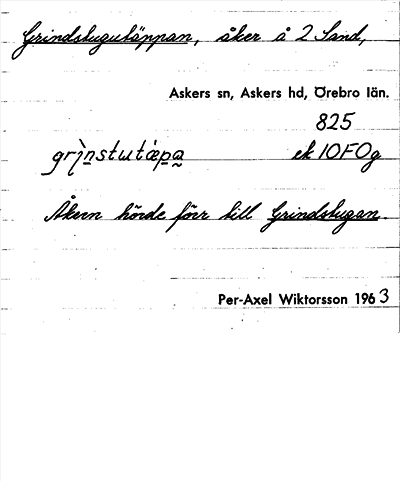 Grindstugutäppan, åker å 2 Sand,
Askers sn, Askers hd, Örebro län.
825
grı̀nstutæ̀pa ek 10F0g
Åkern hörde förr till Grindstugan.
Per-Axel Wiktorsson 1963